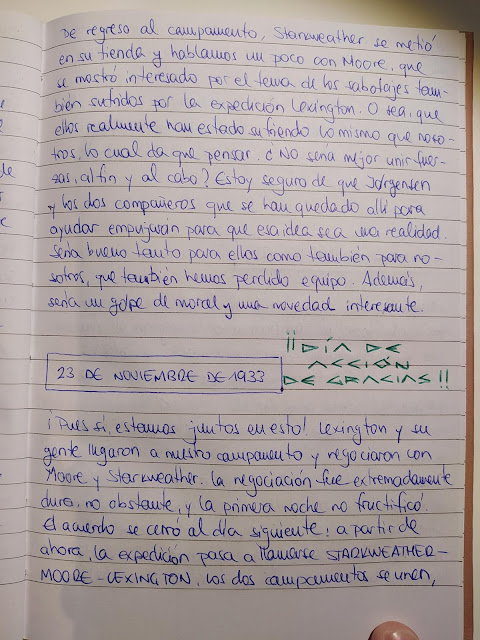 De regreso al campamento, Starkweather se metió
en su tienda y hablamos un poco con Moore, que
se mostró interesado por el tema de los sabotajes tam-
bién sufridos por la expedición Lexington. O sea, que
ellos realmente han estado sufriendo lo mismo que noso-
tros, lo cual da que pensar. ¿No sería mejor unir fuer-
zas, al fin y al cabo? Estoy seguro de que Jörgensen
y los dos compañeros que se han quedado allí para
ayudar empujarán para que esa idea sea una realidad.
Sería bueno tanto para ellos como también para no-
sotros, que también hemos perdido equipo. Además,
sería un golpe de moral y una novedad interesante.
23 DE NOVIEMBRE DE 1933
¡¡DÍA DE
ACCIÓN
DE GRACIAS!!
¡Pues sí, estamos juntos en esto! Lexington y su
gente llegaron a nuestro campamento y negociaron con
Moore y Starkweather. La negociación fue extremadamente
dura, no obstante, y la primera noche no fructificó.
El acuerdo se cerró al día siguiente: a partir de
ahora, la expedición pasa a llamarse STARKWEATHER-
MOORE-LEXINGTON. Los dos campamentos se unen,